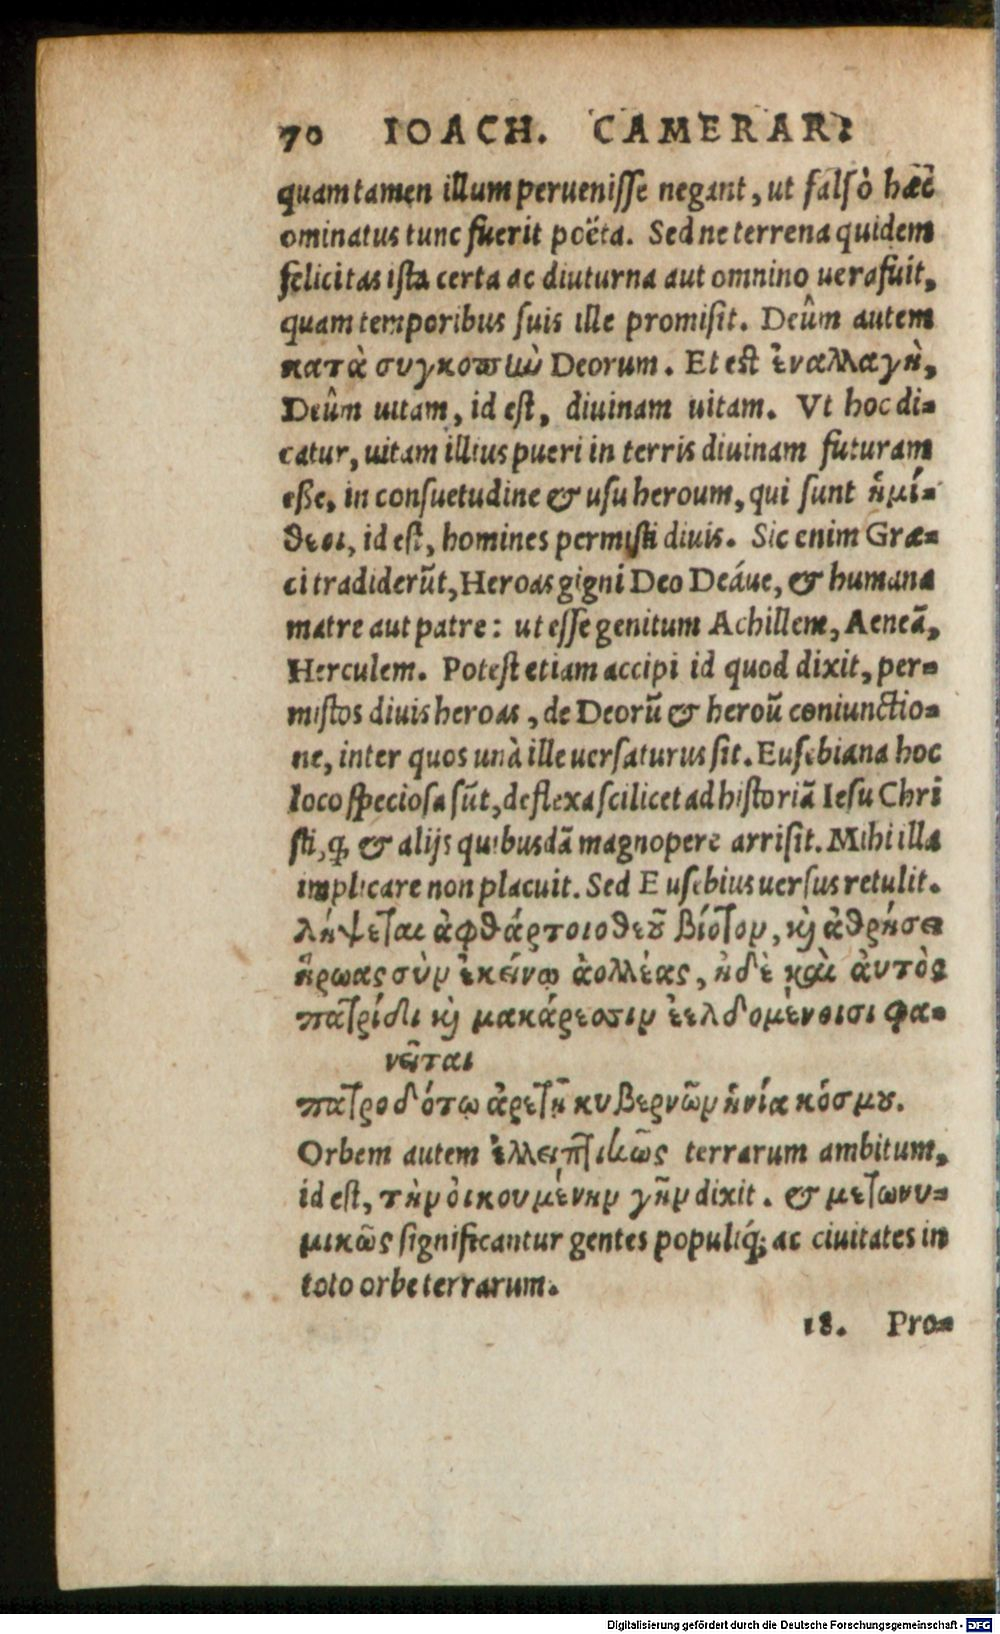 70 IOACH. CAMERARI
quam tamen illum peruenisse negant, ut falsò hæc
ominatus tunc fuerit poëta. Sed ne terrena quidem
felicitas ista certa ac diuturna aut omnino uera fuit,
quam temporibus suis ille promisit. Deûm autem
κατὰ συγκοπὴν Deorum. Et est ἐναλλαγὴ,
Deûm uitam, id est, diuinam uitam. Vt hoc di-
catur, uitam illius pueri in terris diuinam futuram
eße, in consuetudine & usu heroum, qui sunt ἡμί-
θεοι, id est, homines permisti diuis. Sic enim Græ-
ci tradiderũt, Heroas gigni Deo Deáue, & humana
matre aut patre: ut esse genitum Achillem, Aeneã,
Herculem. Potest etiam accipi id quod dixit, per-
mistos diuis heroas, de Deorũ & heroũ coniunctio-
ne, inter quos unà ille uersaturus sit. Eusebiana hoc
loco speciosa sũt, deflexa scilicet ad historiã Iesu Chri
sti, ꝗ & alijs quibusdã magnopere arrisit. Mihi illa
implicare non placuit. Sed Eusebius uersus retulit.
λήψεται ἀφθάρτοιο θεοῦ βίοτον, καὶ ἀθρήσει
ἥρωας σὺν ἐκείνῳ ἀολλέας, ἠδὲ καὶ ἀυτὸς
πατρίδι καὶ μακάρεσσιν ἐελδομένοισι φα-
νεῖται
πατροδότῳ ἀρετῇ κυβερνῶν ἡνία κόσμου.
Orbem autem ἐλλειπτικῶς terrarum ambitum,
id est, τὴν ὀικουμένην γῆν dixit. & μετωνυ-
μικῶς significantur gentes populiq́; ac ciuitates in
toto orbe terrarum.
18. Pro-
Digitalisierung gefördert durch die Deutsche Forschungsgemeinschaft - DFG